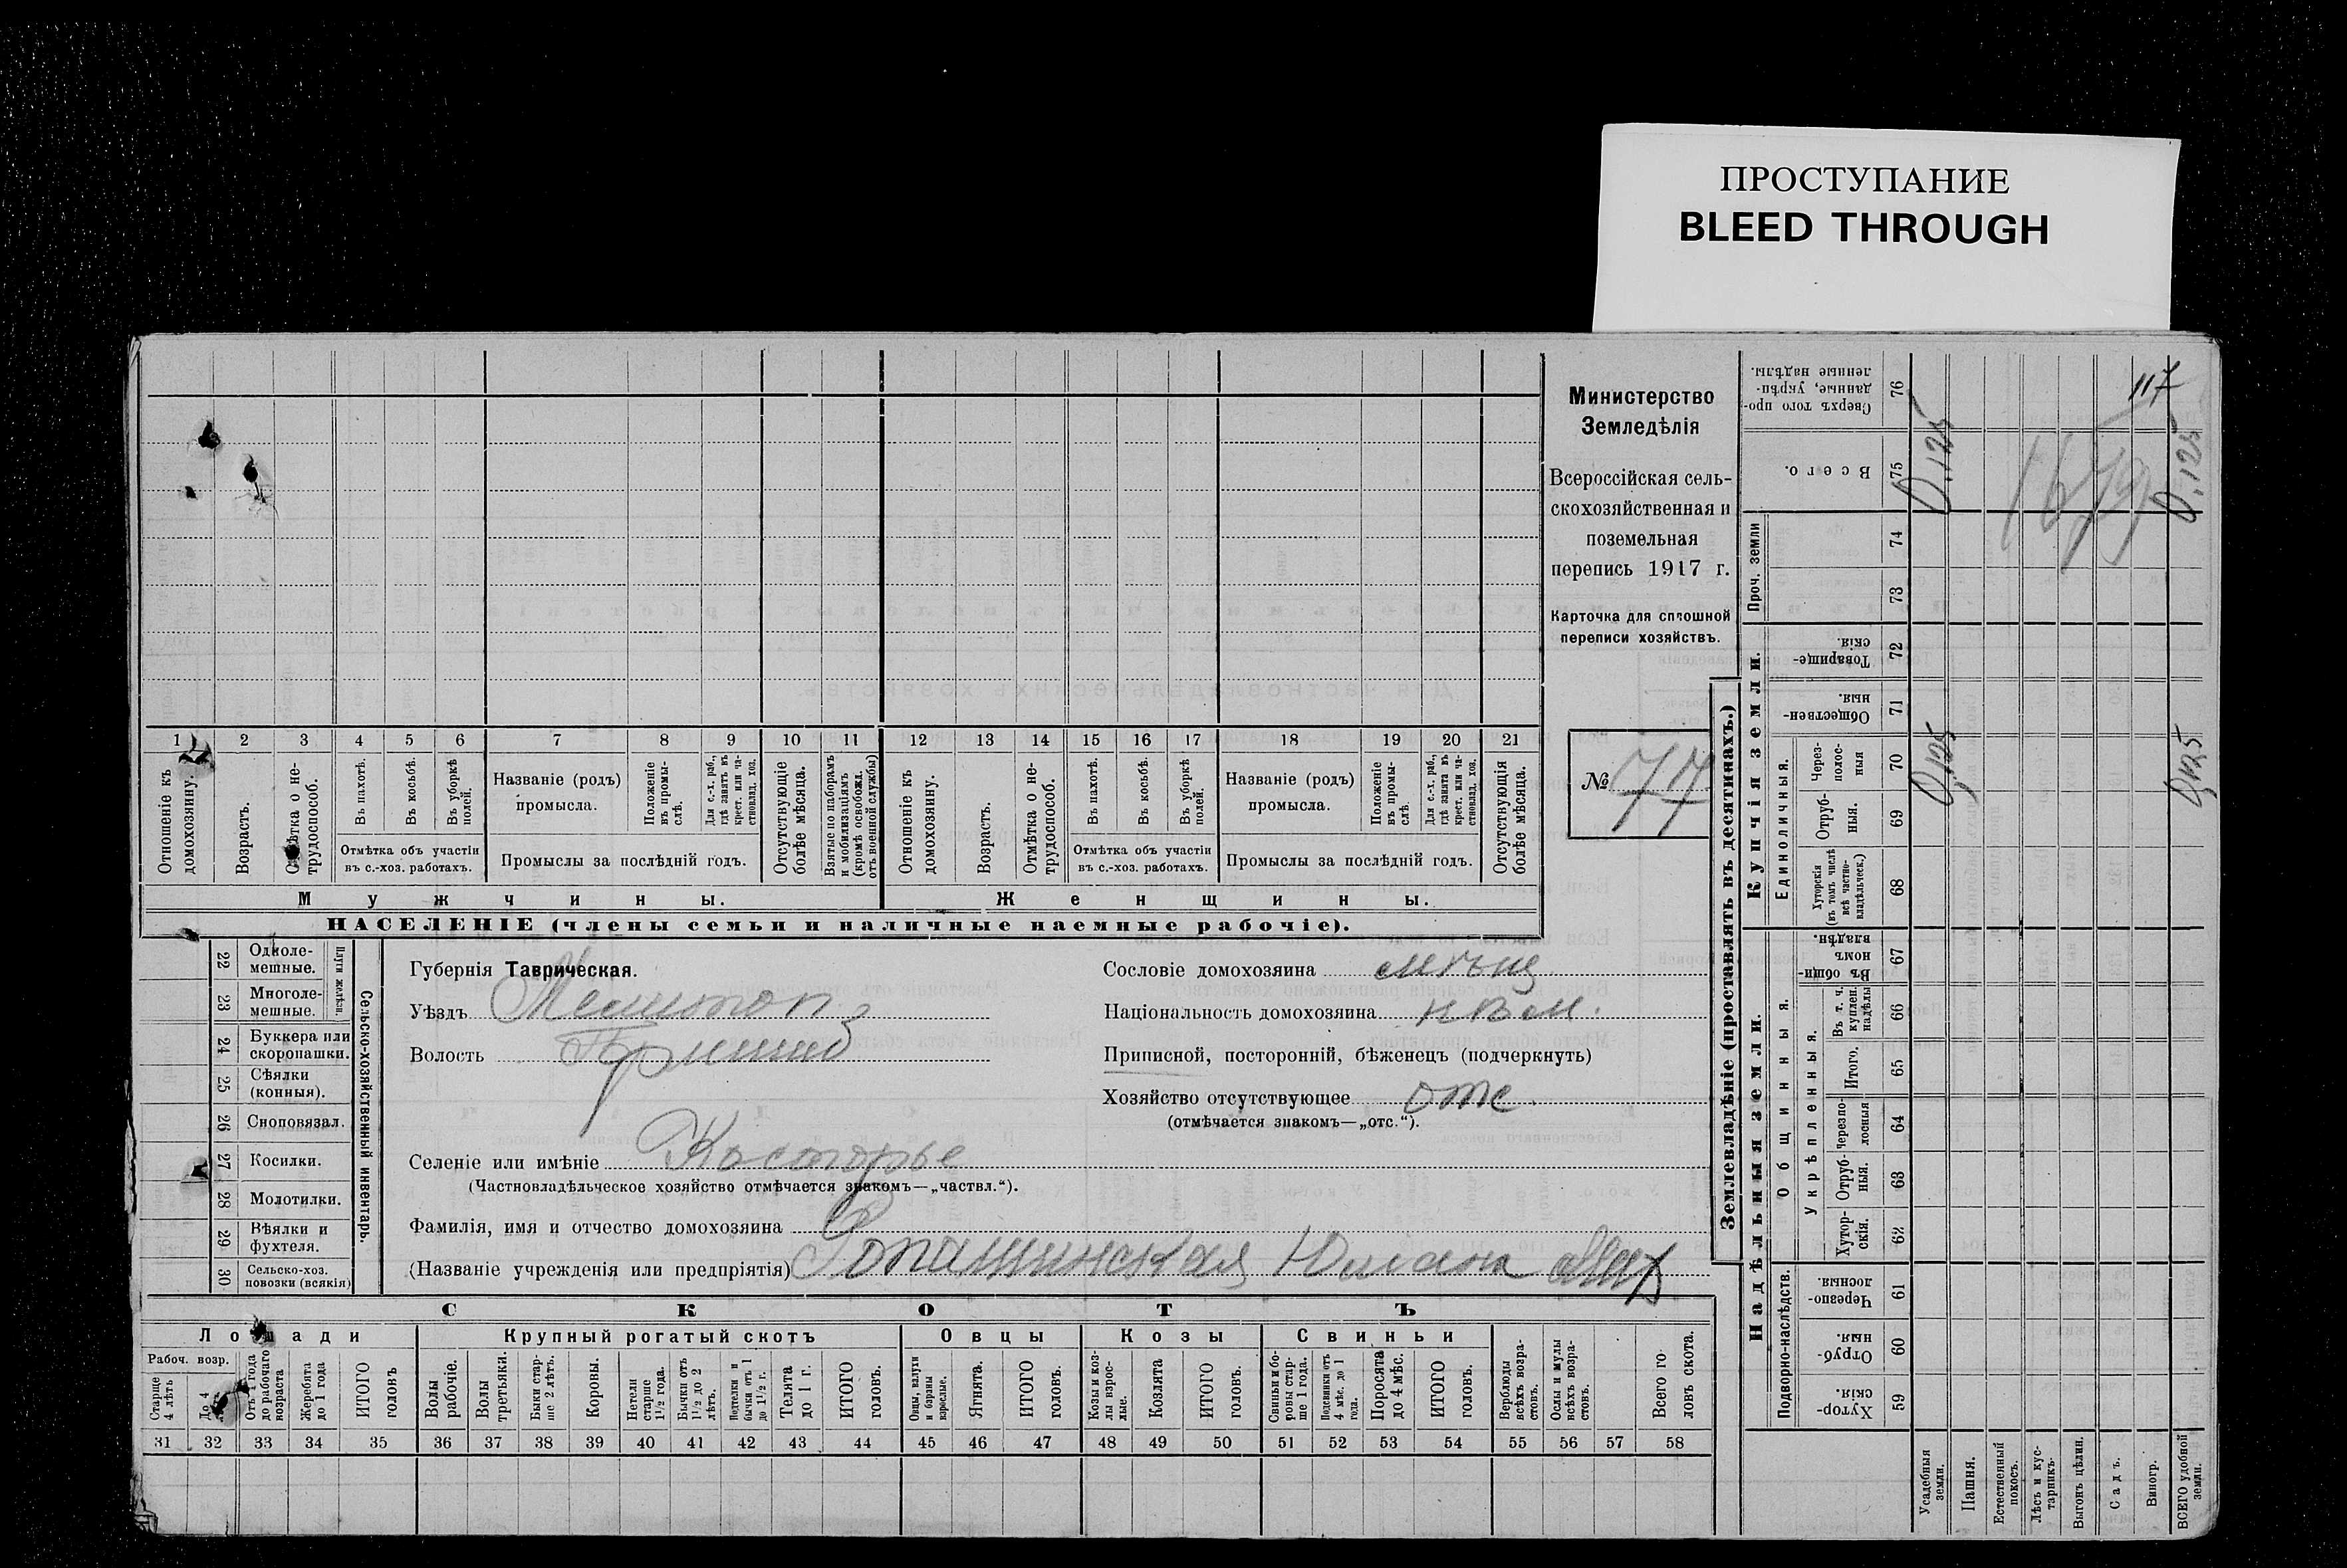 ПРОСТУПАНИЕ
BLEED THROUGH
117
Министерство
Земледѣлія
Всероссійская сель-
скохозяйственная и
поземельная
перепись 1917 г.
Карточка для сплошной
переписи хозяйствъ.
№ 77
1 2 3 4 5 6 7 8 9 10 11 12 13 14 15 16 17 18 19 20 21
Отношеніе къ домохозяину.
Возрастъ.
Отмѣтка о не-трудоспособ.
Въ пахотѣ.
Въ косьбѣ.
Въ уборкѣ полей.
Отмѣтка объ участіи
въ с.-хоз. работахъ.
Названіе (родъ)
промысла.
Положеніе въ промы-слѣ.
Для с.-х. раб., гдѣ занятъ въ крест. или ча-стновлад. хоз.
Промыслы за послѣдній годъ.
Отсутствующіе болѣе мѣсяца.
Взятые по наборамъ и мобилизаціямъ (кромѣ освобожд. отъ военной службы)
Отношеніе къ домохозяину.
Возрастъ.
Отмѣтка о не-трудоспособ.
Въ пахотѣ.
Въ косьбѣ.
Въ уборкѣ полей.
Отмѣтка объ участіи
въ с.-хоз. работахъ.
Названіе (родъ)
промысла.
Положеніе въ промы-слѣ.
Для с.-х. раб., гдѣ занята въ крест. или ча-стновлад. хоз.
Промыслы за послѣдній годъ.
Отсутствующія болѣе мѣсяца.
Мужчины.
Женщины.
НАСЕЛЕНІЕ (члены семьи и наличные наемные рабочіе).
22 Одноле-мешные.
23 Многоле-мешные.
Плуги желѣзн.
24 Буккера или скоропашки.
25 Сѣялки (конныя).
26 Сноповязал.
27 Косилки.
28 Молотилки.
29 Вѣялки и фухтеля.
30 Сельско-хоз. повозки (всякія)
Сельско-хозяйственный инвентарь.
Губернія Таврическая.
Уѣздъ Мелитоп
Волость
Сословіе домохозяина мѣщ
Національность домохозяина
Приписной, посторонній, бѣженецъ (подчеркнуть)
Хозяйство отсутствующее отс.
(отмѣчается знакомъ—„отс.“).
Селеніе или имѣніе
(Частновладѣльческое хозяйство отмѣчается знакомъ—„частвл.“).
Фамилія, имя и отчество домохозяина
(Названіе учрежденія или предпріятія)
СКОТЪ
Лошади
Крупный рогатый скотъ
Овцы
Козы
Свиньи
Рабоч. возр.
Старше 4 лѣтъ
До 4
Отъ 1 года до рабочаго возраста
Жеребята до 1 года
ИТОГО головъ
Волы рабочіе.
Волы третьяки.
Быки стар-ше 2 лѣтъ.
Коровы.
Нетели старше 1½ года.
Бычки отъ 1½ до 2 лѣтъ.
Подтелки и бычки отъ 1 до 1½ г.
Телята до 1 г.
ИТОГО головъ.
Овцы, валухи и бараны взрослые.
Ягнята.
ИТОГО головъ.
Козы и коз-лы взрос-лые.
Козлята
ИТОГО головъ.
Свиньи и бо-ровы стар-ше 1 года.
Подсвинки отъ 4 мѣс. до 1 года.
Поросята до 4 мѣс.
ИТОГО головъ.
Верблюды всѣхъ возра-стовъ.
Ослы и мулы всѣхъ возра-стовъ.
Всего го-ловъ скота.
31 32 33 34 35 36 37 38 39 40 41 42 43 44 45 46 47 48 49 50 51 52 53 54 55 56 57 58
Землевладѣніе (проставлять въ десятинахъ.)
Надѣльныя земли.
Купчія земли.
Проч. земли
Подворно-наслѣдств.
Общинныя.
Укрѣпленныя.
Единоличныя.
Хутор-скія. 59
Отруб-ныя. 60
Черезпо-лосныя. 61
Хутор-скія. 62
Отруб-ныя. 63
Черезпо-лосныя 64
Итого. 65
Въ т. ч. куплен. надѣлы 66
Въ общин-номъ владѣн. 67
Хуторскія (въ томъ числѣ всѣ частно-владѣльческ.) 68
Отруб-ныя. 69
Через-полос-ныя 70
Обществен-ныя. 71
Товарище-скія. 72
73
74
Всего. 75
Сверхъ того про-данные, укрѣп-ленные надѣлы. 76
Усадебныя земли.
Пашня.
Естественный покосъ.
Лѣсъ и кус-тарникъ.
Выгонъ цѣлин.
Садъ.
Виногр.
ВСЕГО удобной земли.
0,125
0,125
0,125
0,125